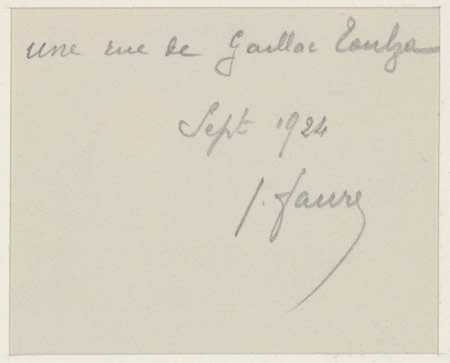 une rue de Gaillac Toulza
Sept 1924
J. Faure